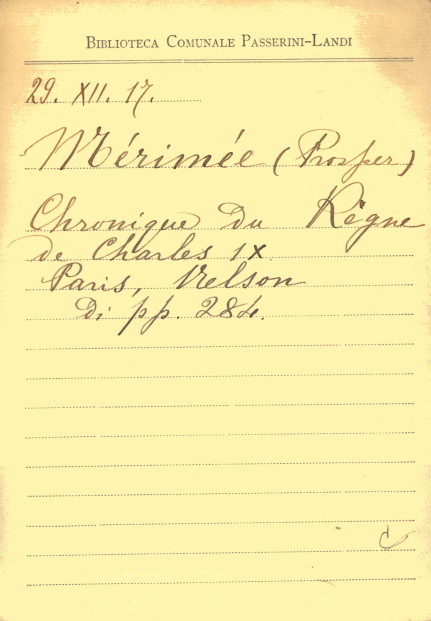 BIBLIOTECA COMUNALE PASSERINI-LANDI
29. XII. 17.
Mérimée (Prosper)
Chronique du Règne
de Charles IX
Paris, Nelson
Di pp. 284.